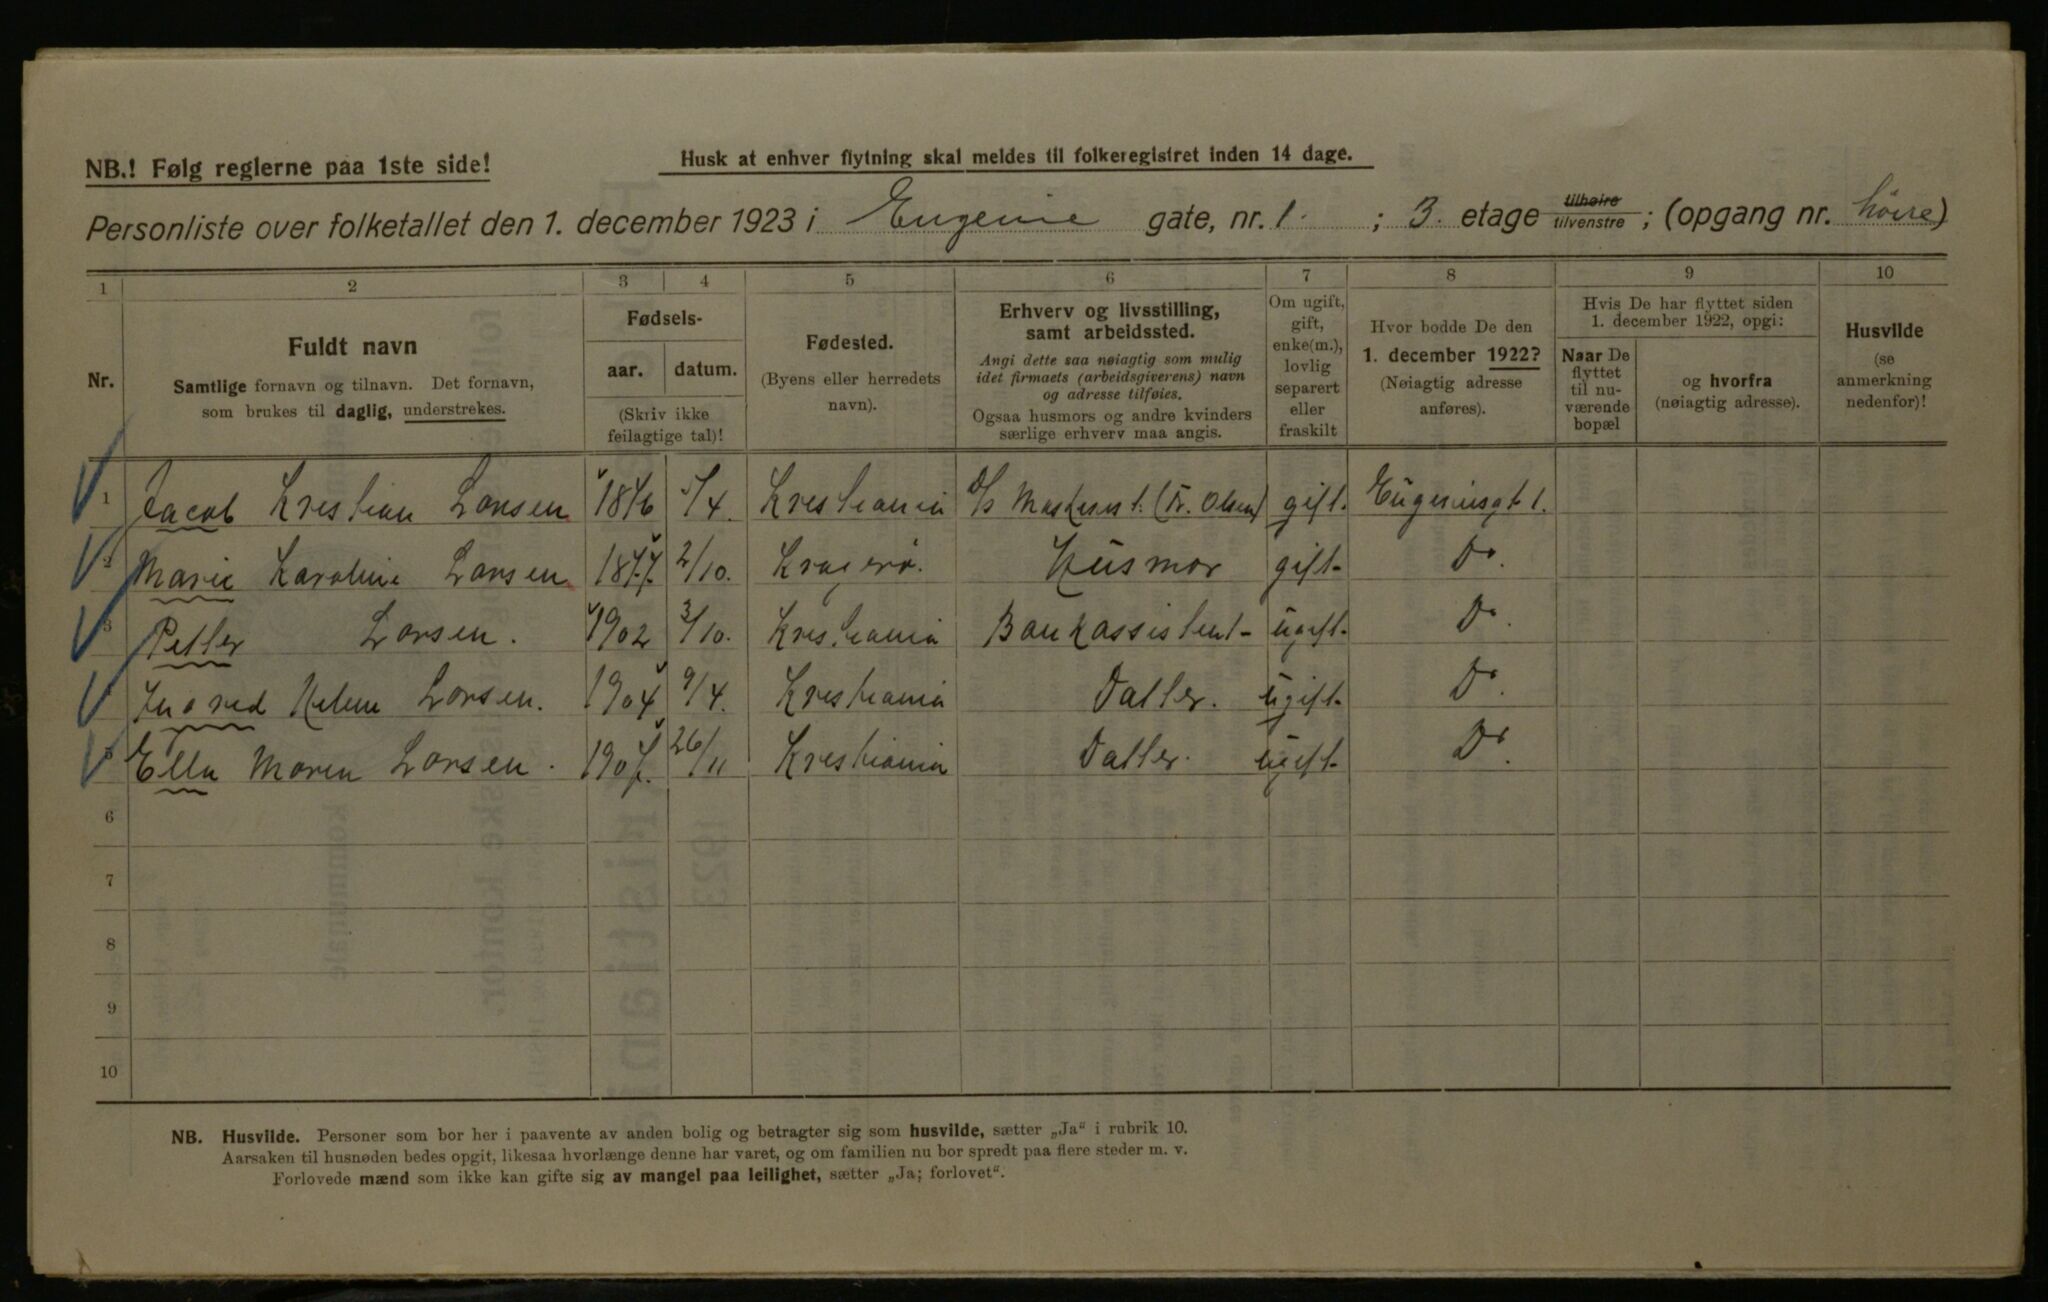 NB.! Følg reglerne paa 1ste side!
Husk at enhver flytning skal meldes til folkeregistret inden 14 dage.
Personliste over folketallet den 1. december 1923 i Eugenie gate, nr. 1. ; 3. etage tilhøire tilvenstre ; (opgang nr. höire)
1 2 3 4 5 6 7 8 9 10
Nr.
Fuldt navn
Samtlige fornavn og tilnavn. Det fornavn,
som brukes til daglig, understrekes.
Fødsels-
aar. datum.
(Skriv ikke
feilagtige tal)!
Fødested.
(Byens eller herredets
navn).
Erhverv og livsstilling,
samt arbeidssted.
Angi dette saa nøiagtig som mulig
idet firmaets (arbeidsgiverens) navn
og adresse tilføies.
Ogsaa husmors og andre kvinders
særlige erhverv maa angis.
Om ugift,
gift,
enke(m.),
lovlig
separert
eller
fraskilt
Hvor bodde De den
1. december 1922?
(Nøiagtig adresse
anføres).
Hvis De har flyttet siden
1. december 1922, opgi:
Naar De
flyttet
til nu-
værende
bopæl
og hvorfra
(nøiagtig adresse).
Husvilde
(se
anmerkning
nedenfor)!
1 Jacob Kristian Larsen 1876 /4. Kristiania (Fr. Olsen) gift. Eugeniesgt 1.
2 Marie Karoline Larsen 1877. 2/10. Kragerö. Husmor gift. Do.
3 Petter Larsen. 1902 3/10. Kristiania Bankassistent ugift. Do.
4 Ingrid Helene Larsen. 1904 9/4. Kristiania Datter. ugift. Do.
5 Ella Maren Larsen. 1907. 26/11 Kristiania Datter. ugift. Do.
6
7
8
9
10
NB. Husvilde. Personer som bor her i paavente av anden bolig og betragter sig som husvilde, sætter „Ja“ i rubrik 10.
Aarsaken til husnøden bedes opgit, likesaa hvorlænge denne har varet, og om familien nu bor spredt paa flere steder m. v.
Forlovede mænd som ikke kan gifte sig av mangel paa leilighet, sætter „Ja; forlovet“.